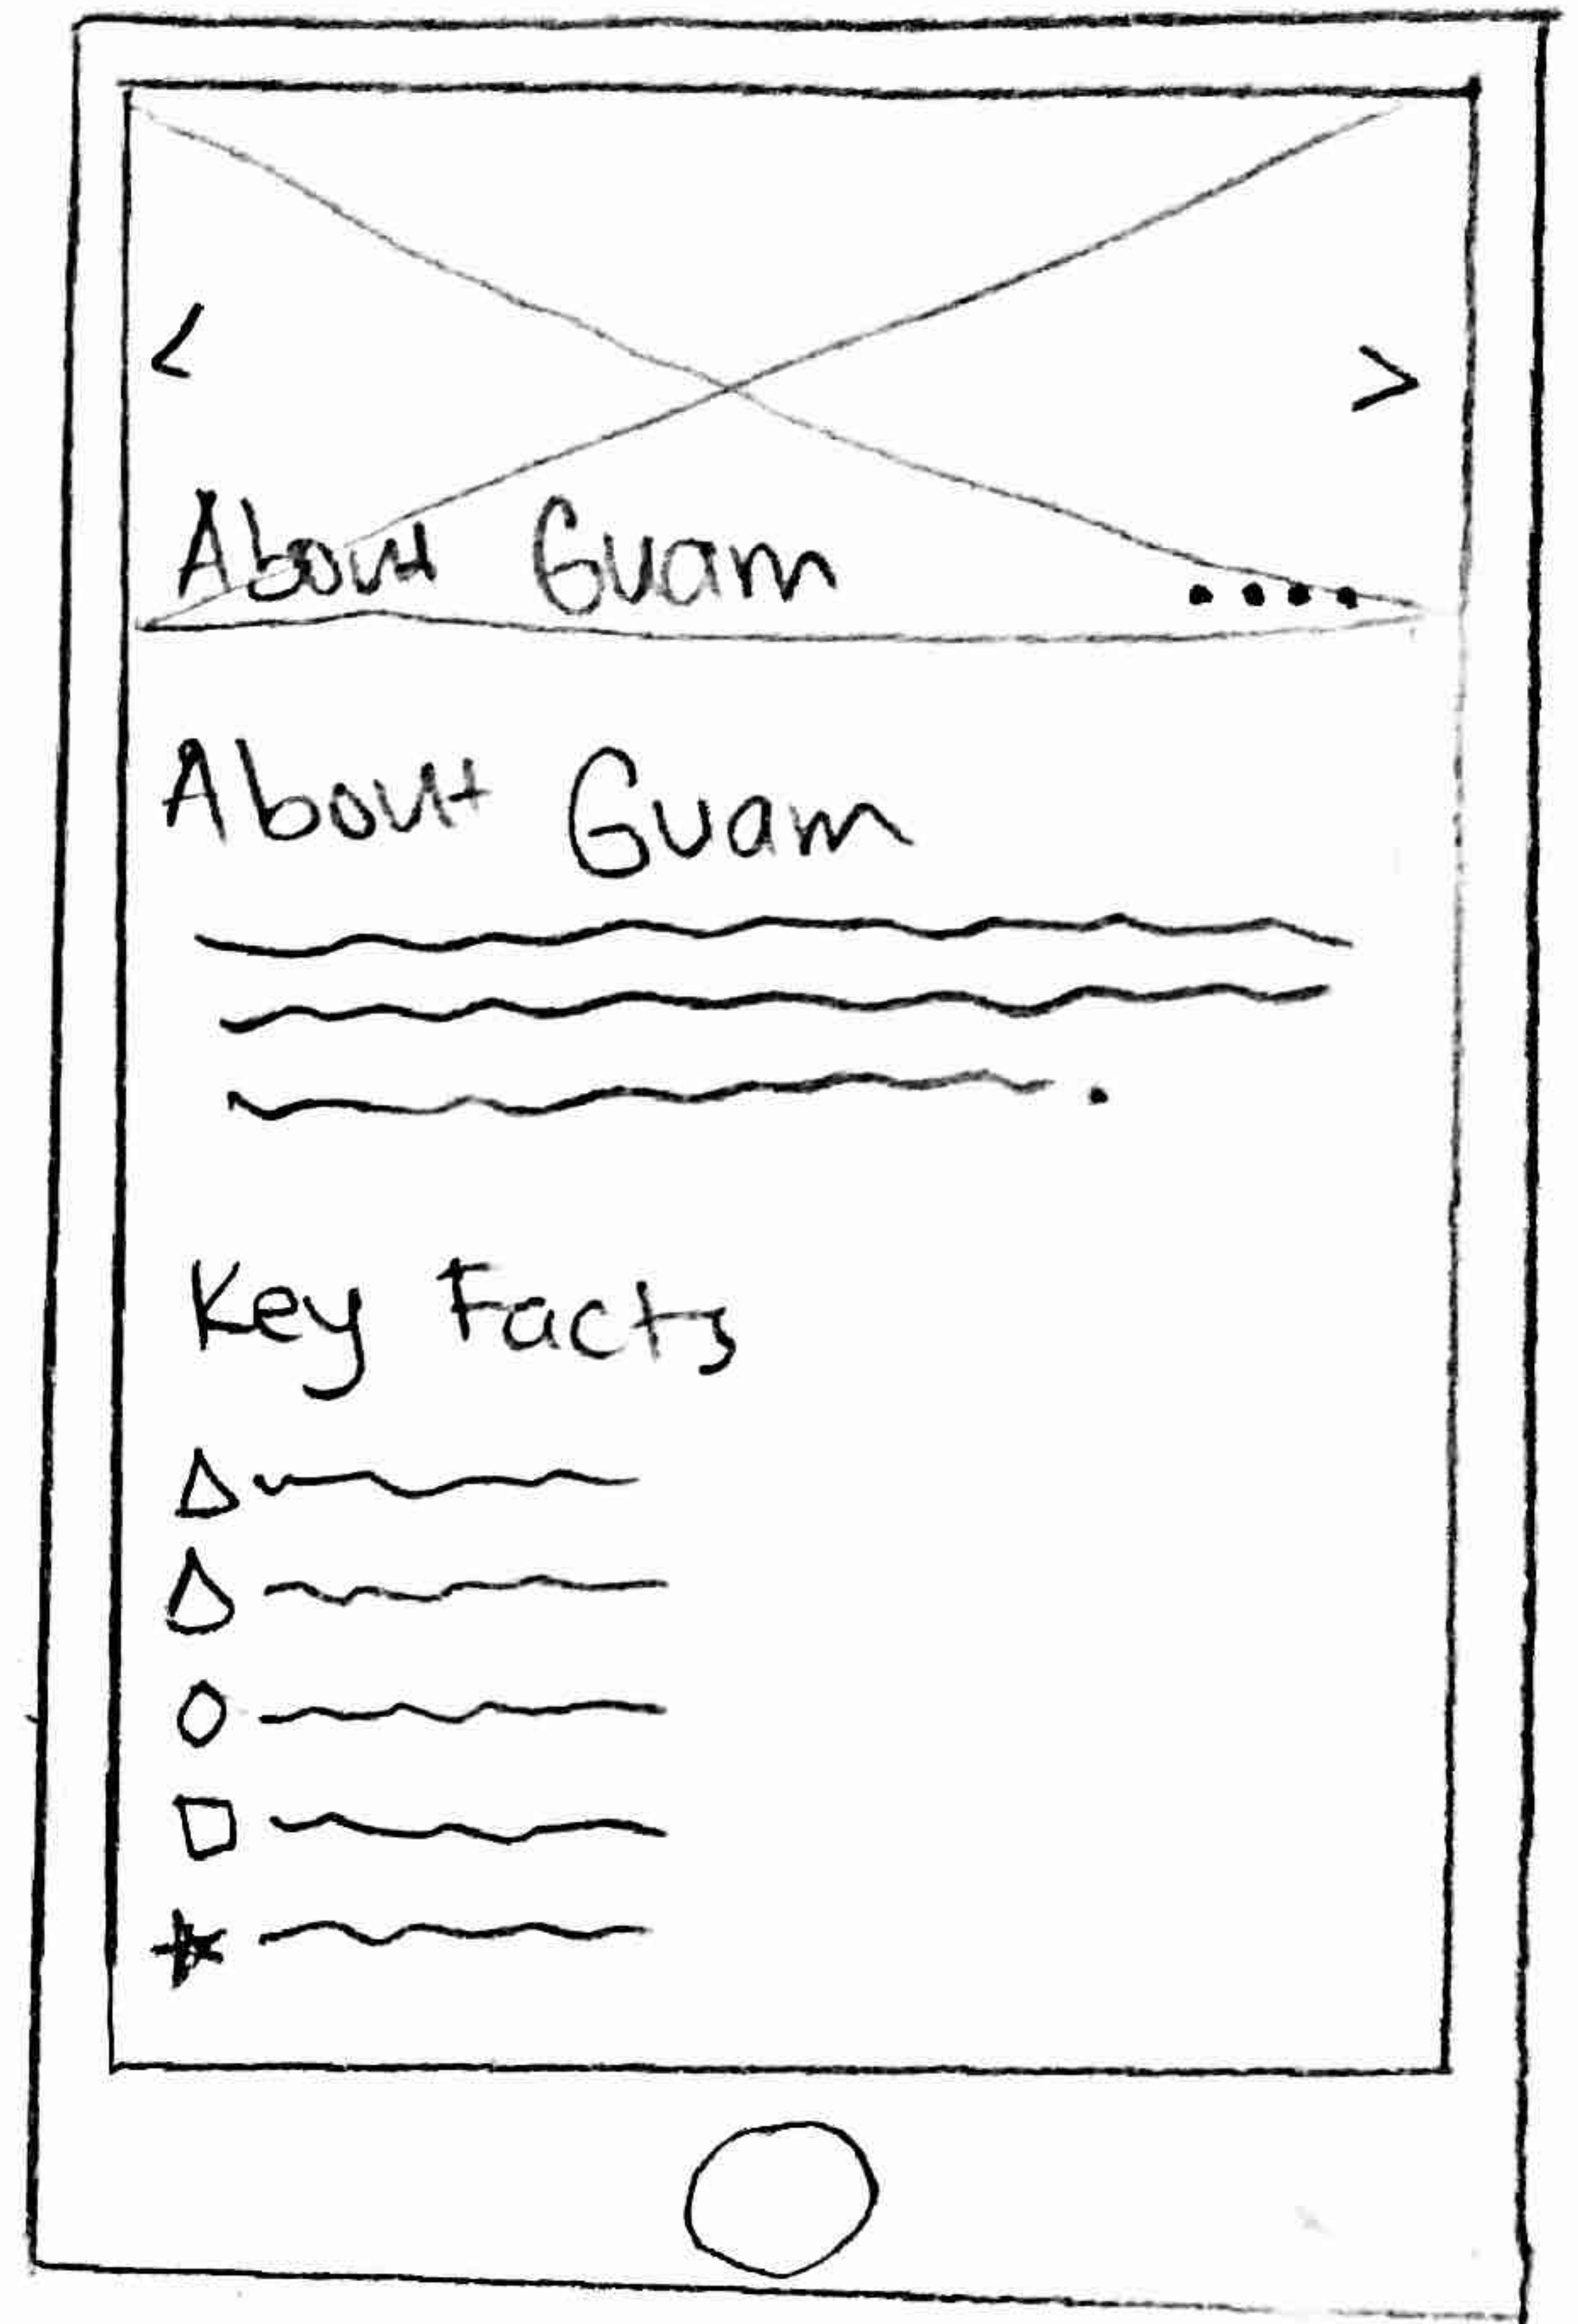 About Guam
About Guam
Key Facts